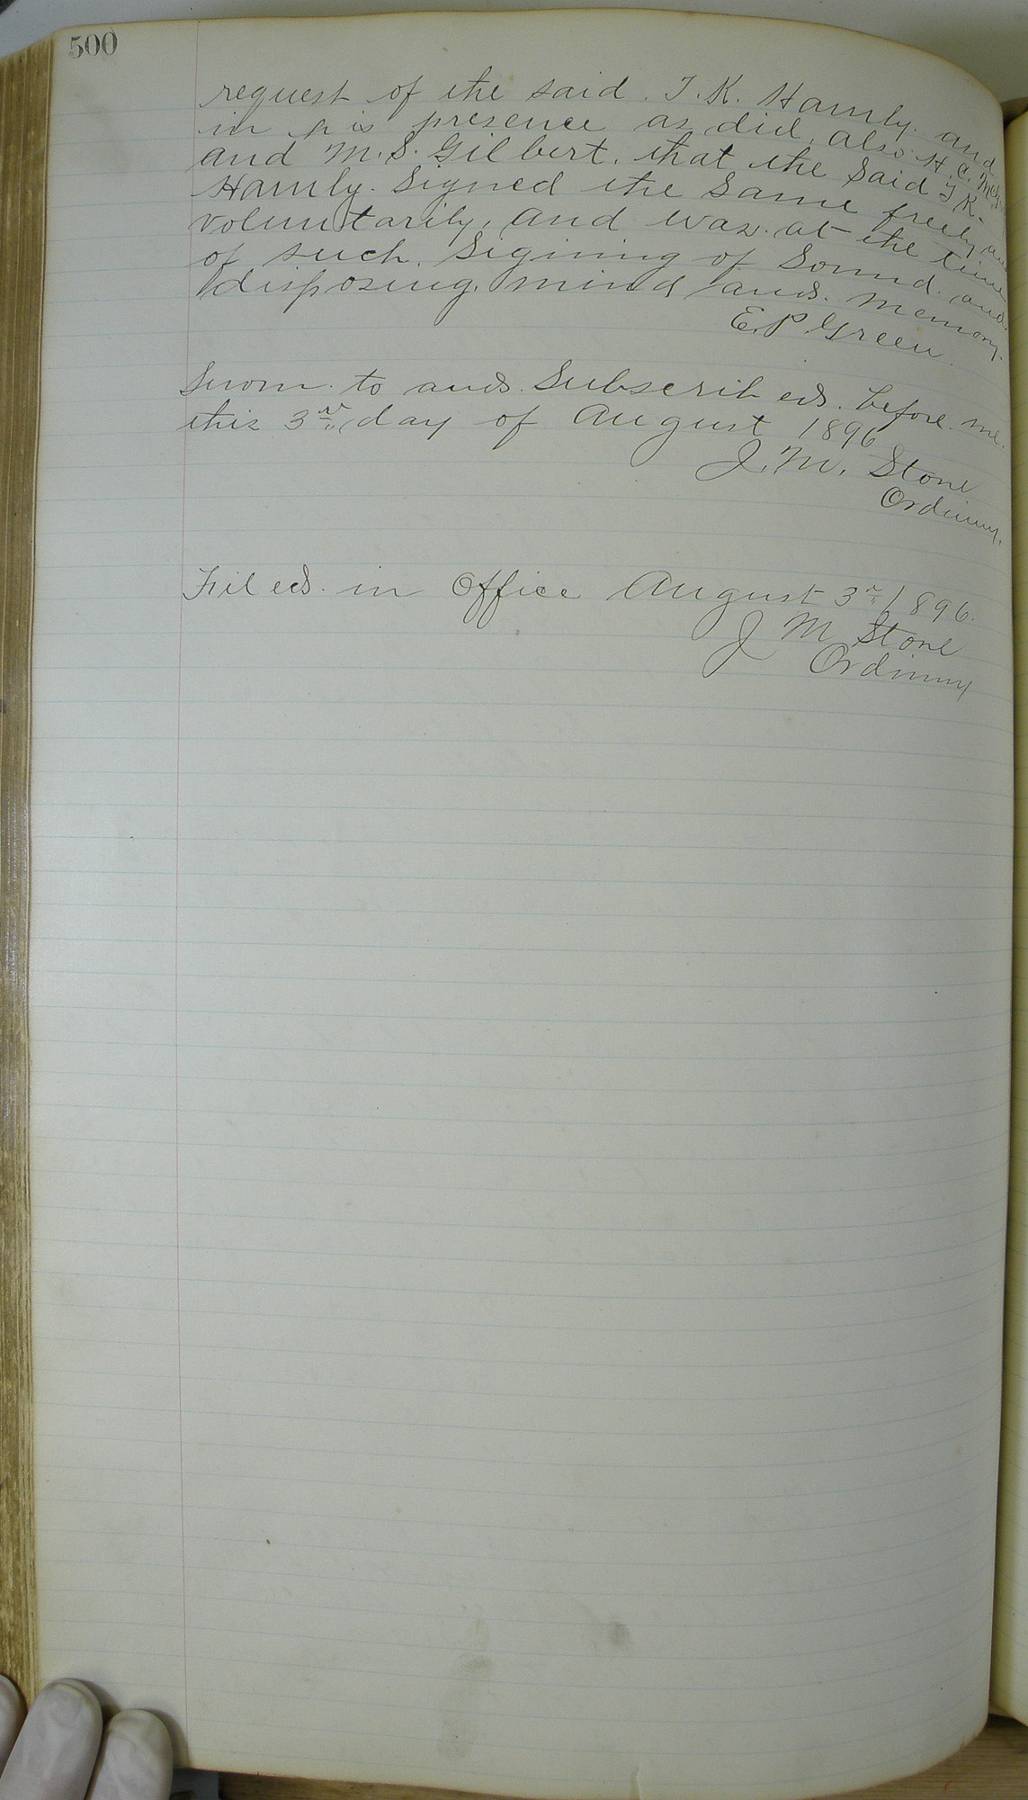 500
request of the said. T. K. Hamly. and
in his presence as did, also. H. C.
and M. S. Gilbert. that the Said T K.
Hamly. Signed the Same freely and
voluntarily, and was. at the time
of such. Signing of Sound. and.
disposing. mind and. memory.
E. P Green.
Sworn. to and. Subscribed. before. me.
this 3rd. day of August 1896
J. M. Stone
Ordinary.
Filed. in Office August 3rd 1896.
J M Stone
Ordinary